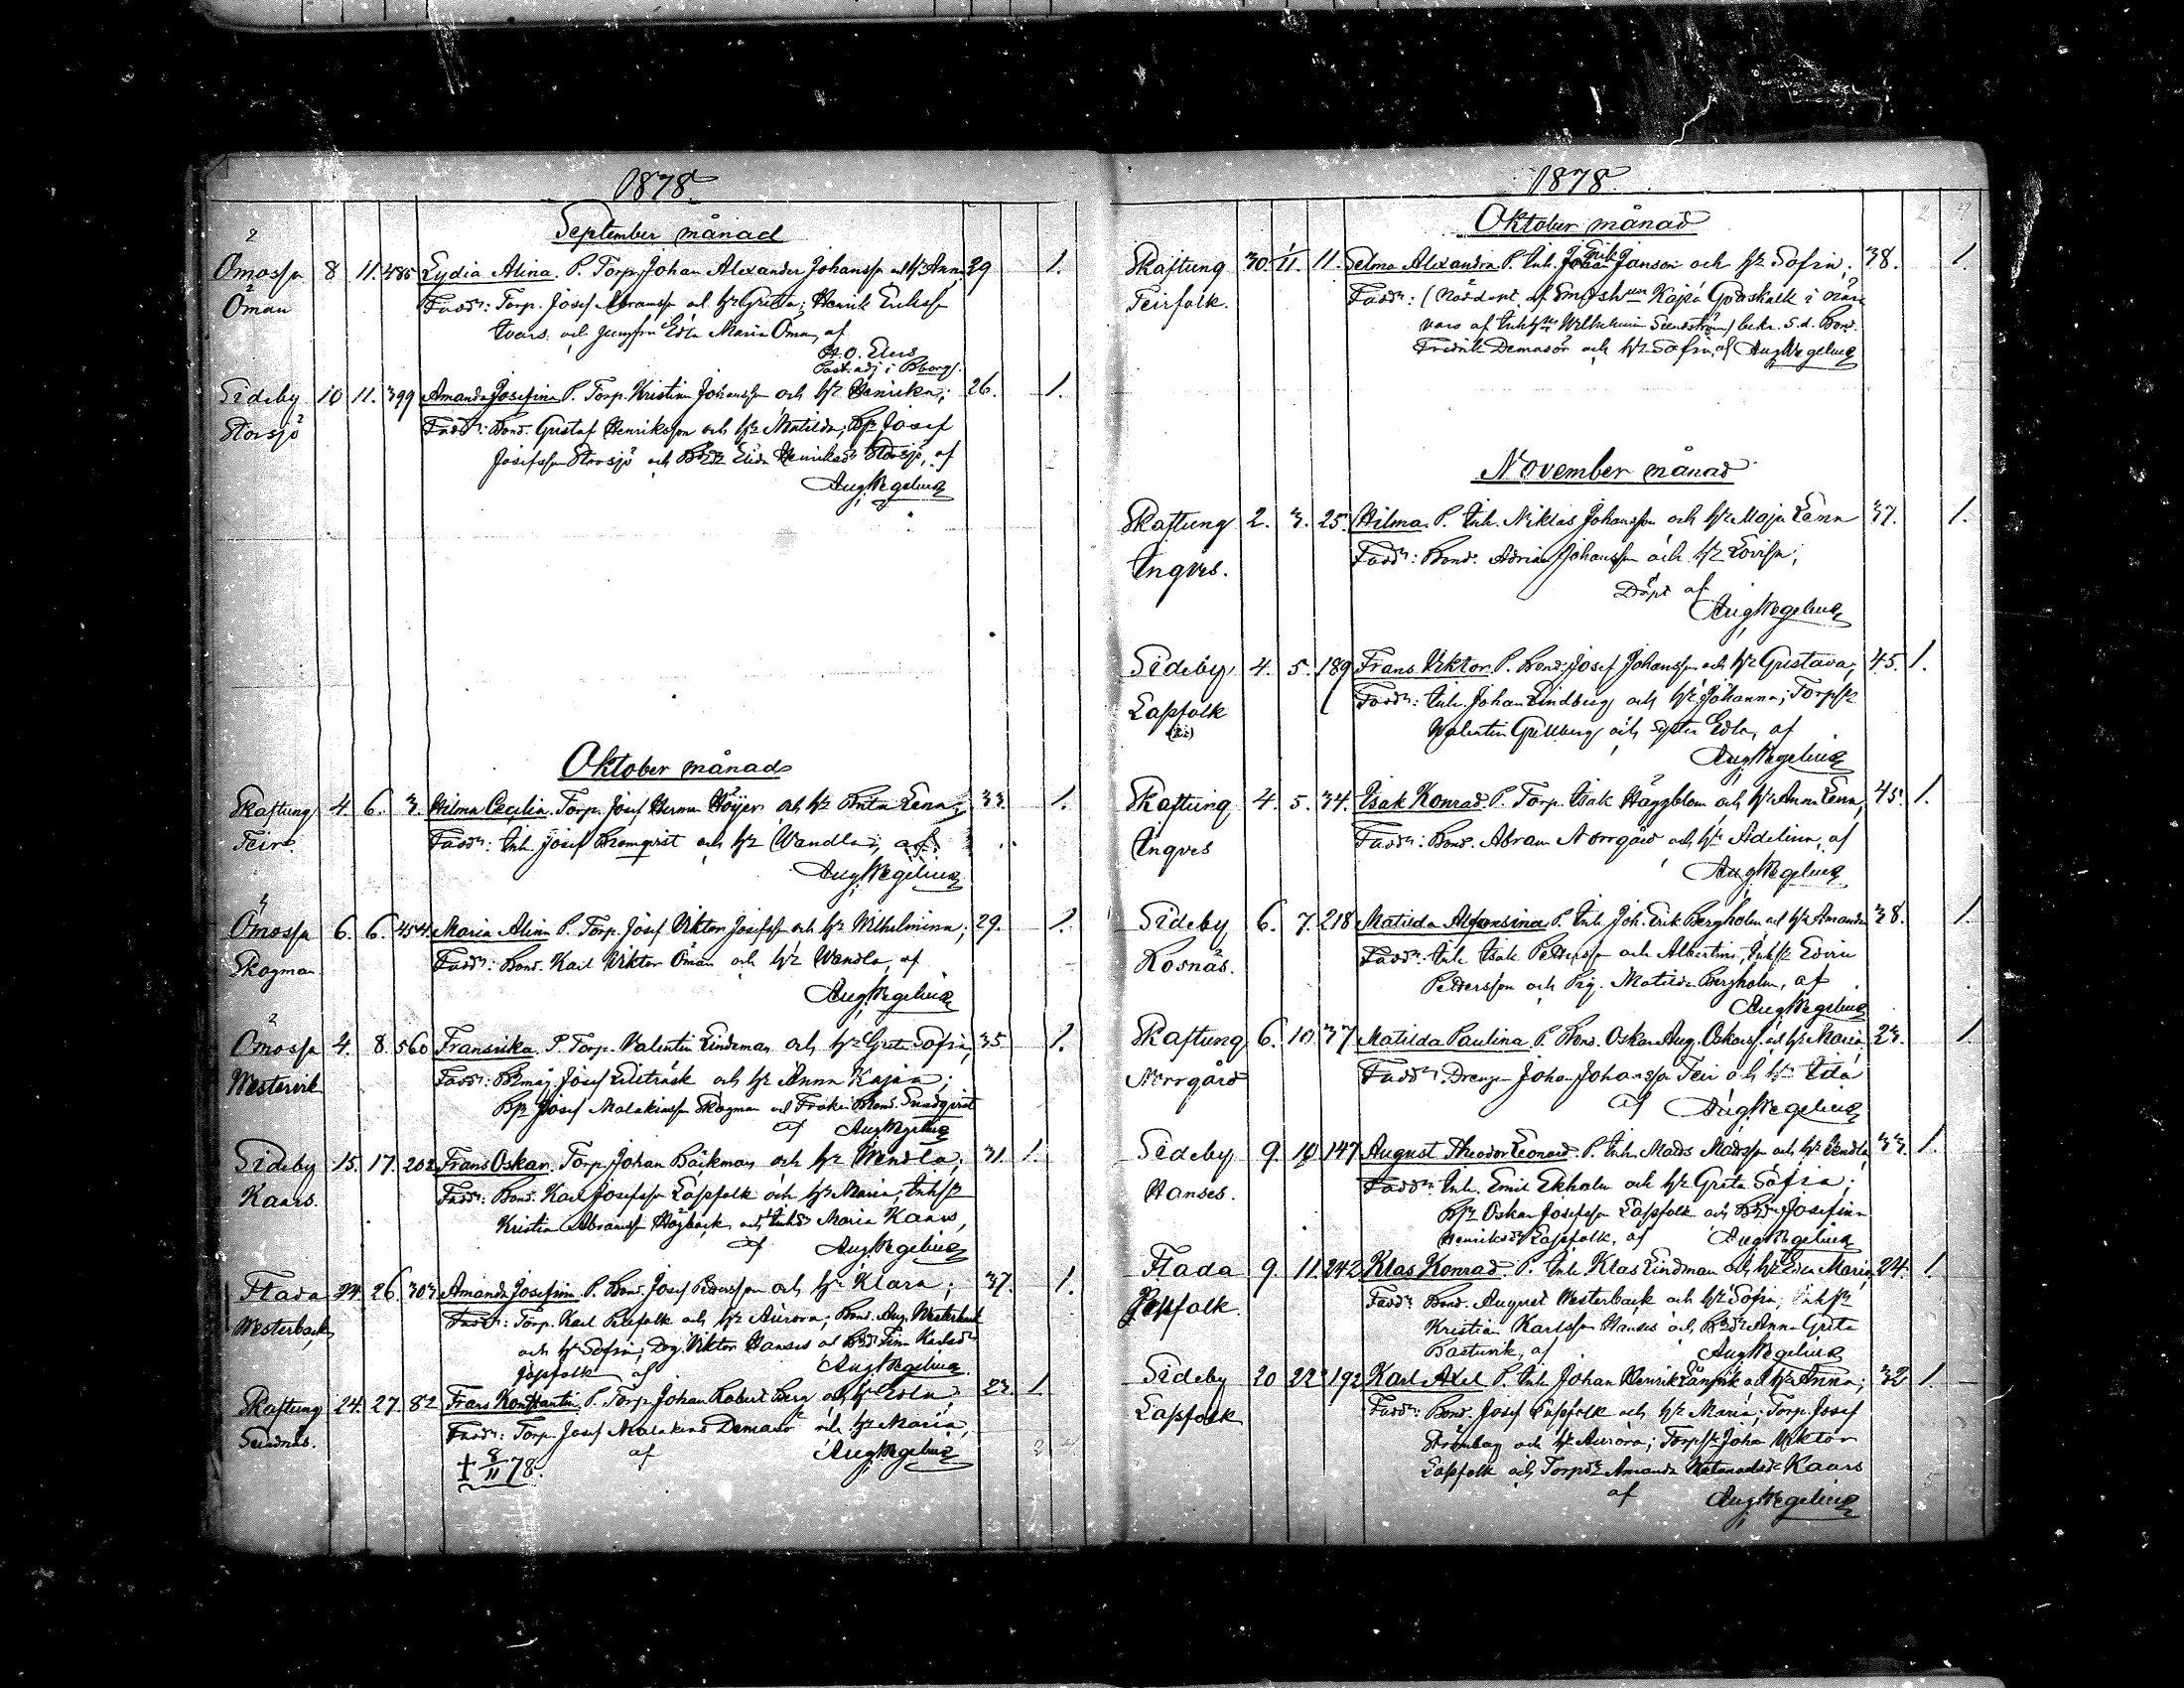 1878
September månad
Ömossa 8 11. 485 Lydia Alina. P. Torp. Johan Alexander Johansson och h/s Anna 29 1.
Öman Fadd: Torp. Josef Abramss och h/s Gretta; Henrik Eriksson
och Jungfru Edla Maria Öman, af
Past. adj i
Sideby 10 11. 399 Amanda Josefina P. Torp. Kristian Johansson och h/s Henrika; 26. 1.
Storsjö Fadd: Bond. Gustaf Henriksson och h/s Matilda; Bs Josef
Josefsson Storsjö och Henriksdr Storsjö, af
Aug Wegelius
Oktober månad
Skaftung 4. 6. 3. Hilma Cecilia. Torp. Josef Herman Höijer och h/s Brita Lena; 33. 1.
Teir. Fadd: Inh. Josef Blomqvist och h/s Wandla; af
Aug Wegelius
Ömossa 6. 6. 454. Maria Alina P. Torp. Josef Viktor Josefsson och h/s Wilhelmina; 29. 1.
Skogman Fadd: Bond. Karl Viktor Öman och h/s Wendla, af
Aug Wegelius
Ömossa 4. 8. 560 Fransiska. P. Torp. Valentin Lindeman och h/s Greta Sofia, 35 1.
Westervik Fadd: Josef Lillträsk och h/s Anna Kajsa;
Josef Malakiasson Skogman och Bond. Sundqvist
af Aug Wegelius
Sideby 15. 17. 202 Frans Oskar. Torp. Johan Bäckman och h/s Wendla; 31. 1.
Kaars. Fadd: Bond. Karl Josefsson Lappfolk och h/s Maria; Inhs
Kristian Abramsson Högback och Maria Kaars,
af Aug Wegelius
Flada 24. 26. 303 Amanda Josefina P. Bond. Josef Petersson och h/s Klara; 37. 1.
Westerback Fadd: Torp. Karl och h/s Aurora; Bond. Aug. Westerback
och h/s Sofia; Drg. Viktor Hanses och
af Aug Wegelius
Skaftung 24. 27. 82 Frans Konstantin P. Torp. Johan Robert Berg och h/s Edla 23. 1.
Fadd: Torp. Josef och h/s Maria,
af Aug Wegelius
† 8/11 78.
1878
Oktober månad
Skaftung 30 1/11. 11. Selma Alexandra P. Inh. Erik Janson och h/s Sofia; 38. 1.
Teirfolk. Fadd: (Nöddöpt af Kajsa i när
varo af Wilhelmina ) bekr. s.d. Bond.
Fredrik och h/s Sofia, af Aug Wegelius
November månad
Skaftung 2. 3. 25. Hilma. P. Inh. Niklas Johansson och h/s Maja Lena 37. 1.
Ingves. Fadd: Bond. Adrian Johansson och h/s Lovisa;
Döpt af
Aug Wegelius
Sideby 4. 5. 189 Frans Viktor. P. Bond. Josef Johansson och h/s Gustava; 45. 1.
Lapfolk Fadd: Inh. Johan Lindberg och h/s Johanna; Torps
Valentin Grellberg och syster Edla, af
Aug Wegelius
Skaftung 4. 5. 34. Isak Konrad. P. Torp. Isak Häggblom och h/s Anna Lena, 45. 1.
Ingves Fadd: Bond. Abram Norrgård och h/s Adelina, af
Aug Wegelius
Sideby 6. 7. 218 Matilda Alfonsina P. Inh. Joh. Erik Bergholm och h/s Amanda 38. 1.
Rosnäs. Fadd: Inh. Isak Pettersson och Albertina; Inhs Edvin
Pettersson och Pig. Matilda Bergholm, af
Aug Wegelius
Skaftung 6. 10 37 Matilda Paulina P. Bond. Oskar Aug. Oskarss. och h/s Maria 23. 1.
Norrgård Fadd: Drengen Johan Johansson Teir och h/s Ida
af Aug Wegelius
Sideby 9. 10 147 August Theodor Leonard. P. Inh. Mats Matsson och h/s Vendla 33. 1.
Hanses. Fadd: Inh. Emil Ekholm och h/s Greta Sofia;
Bs Oskar Josefsson Lappfolk och Josefina
Henriksdr Lappfolk, af Aug Wegelius
Flada 9. 11. 242 Klas Konrad. P. Inh. Klas Lindman och h/s Eva Maria 24. 1.
Fadd: Bond. August Westerback och h/s Sofia; Inhs
Kristian Karlsson Hanses och Anna Greta
Bastuvik, af Aug Wegelius
Sideby 20 22 192 Karl Axel P. Inh. Johan Henrik och h/s Anna; 32 1.
Lapfolk Fadd: Bond. Josef Lappfolk och h/s Maria; Torp. Josef
och h/s Aurora; Torps Johan Viktor
Lappfolk och Torpdr Amanda Kaars
af Aug Wegelius